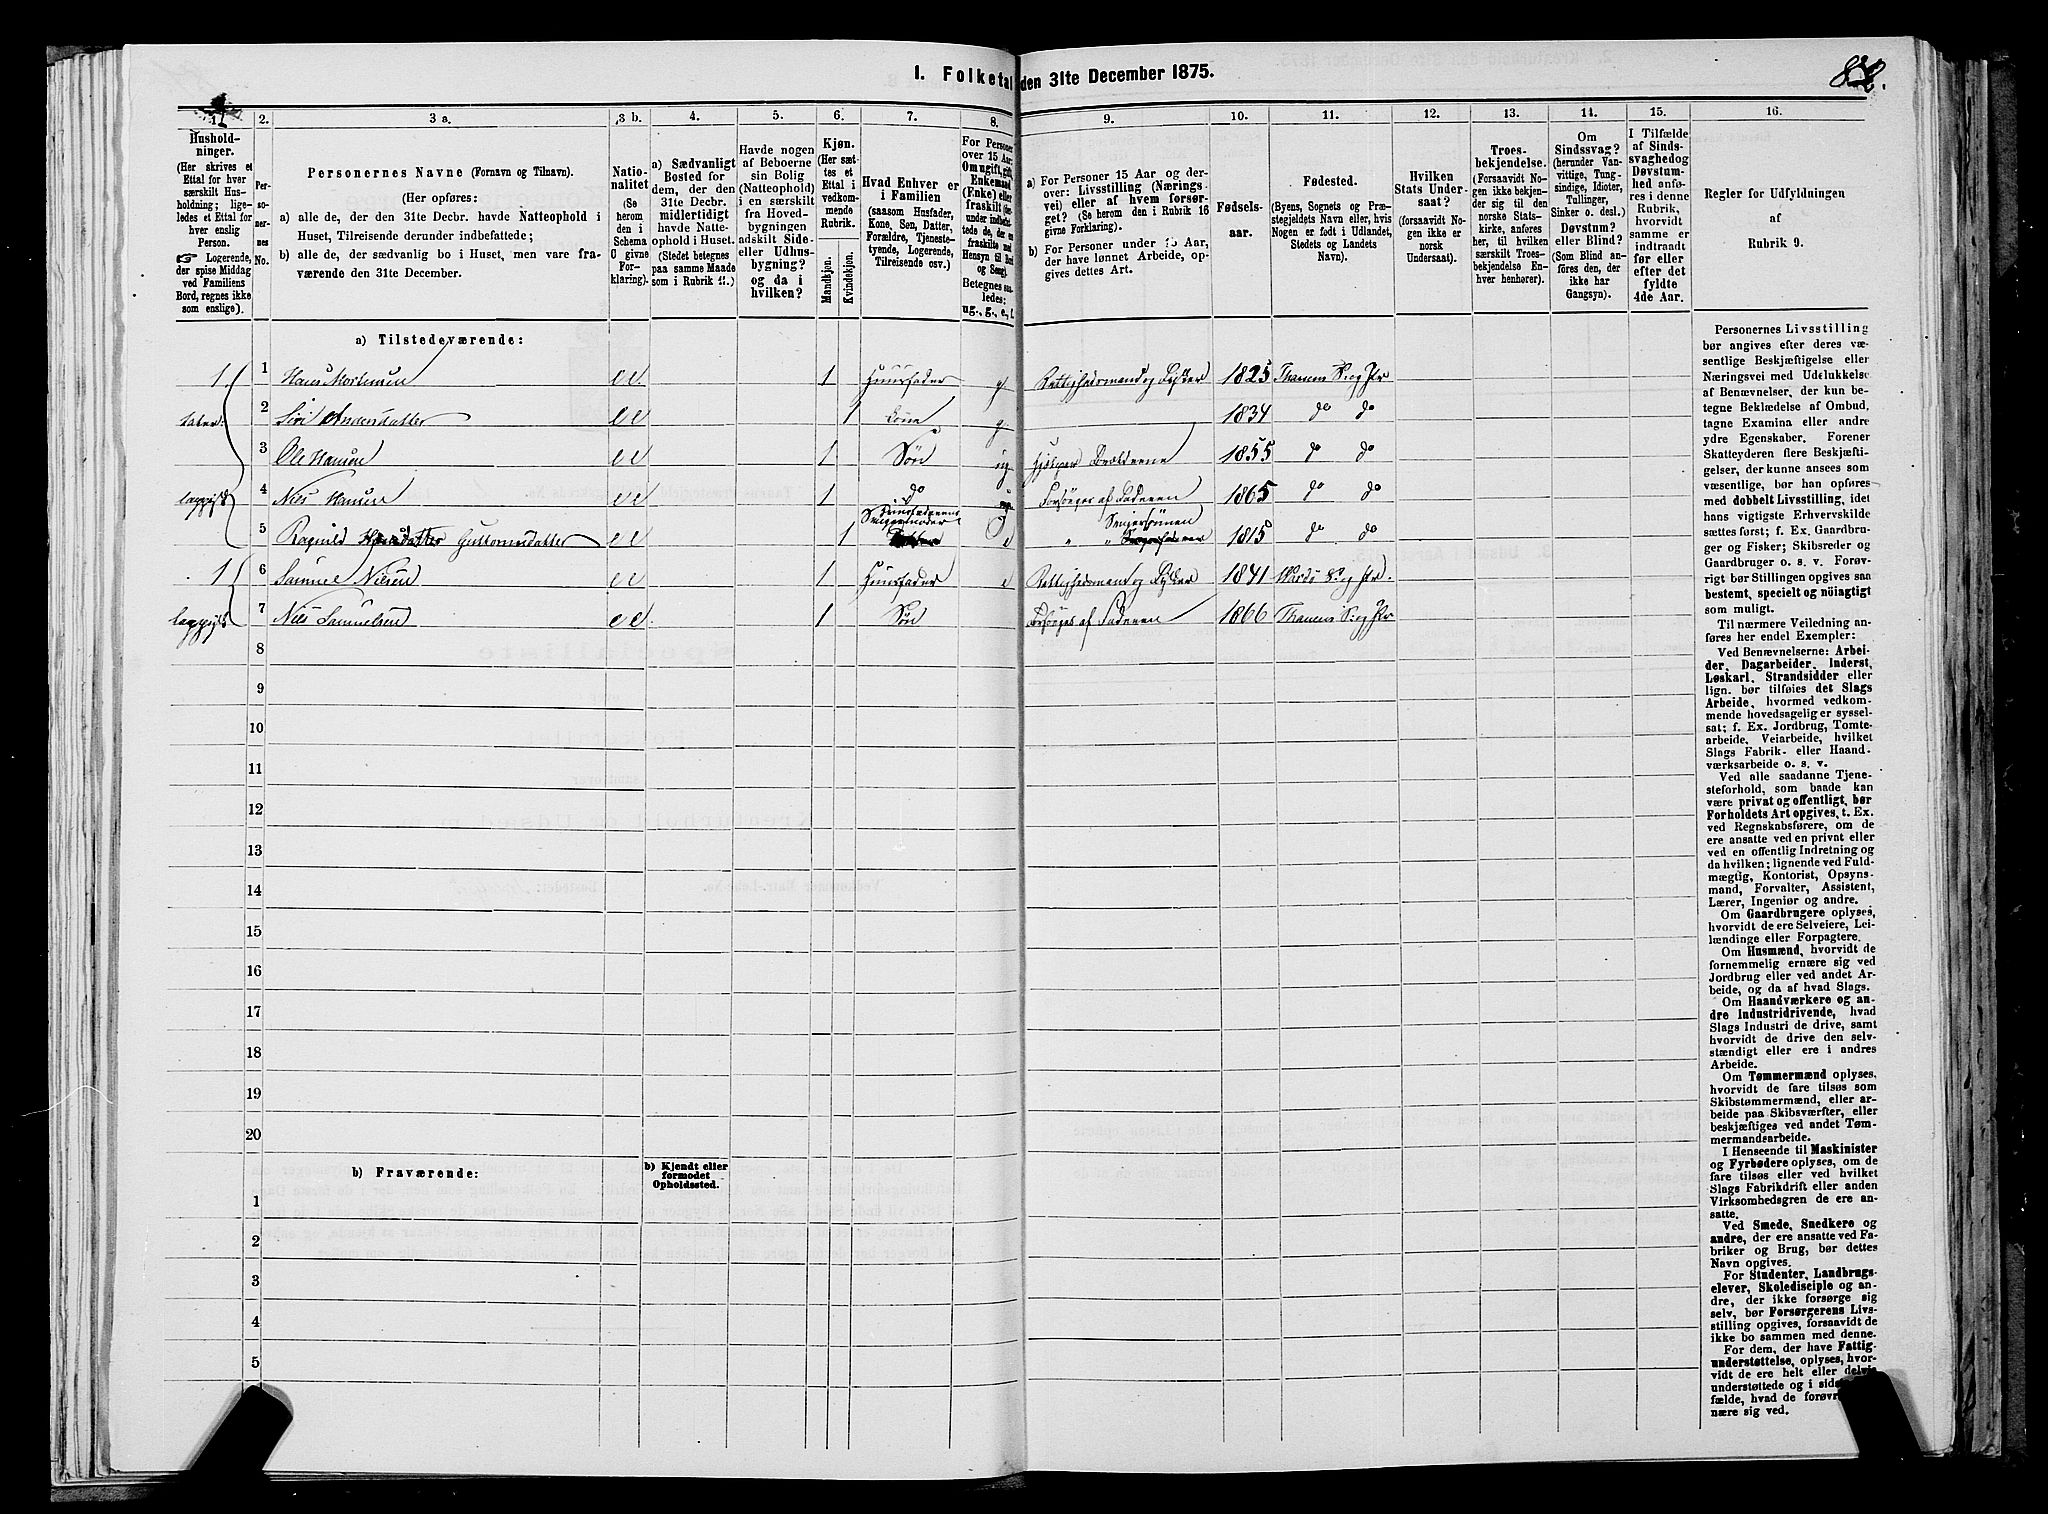 I. Folketal den 31te December 1875.
1.
Hushold-
ninger.
(Her skrives et
Ettal for hver
særskilt Hus-
holdning; lige-
ledes et Ettal for
hver enslig
Person.
☞ Logerende,
der spise Middag
ved Familiens
Bord, regnes ikke
som enslige).
2.
Per-
so-
ner-
nes
No.
3 a.
Personernes Navne (Fornavn og Tilnavn).
(Her opføres:
a) alle de, der den 31te Decbr. havde Natteophold i
Huset, Tilreisende derunder indbefattede;
b) alle de, der sædvanlig bo i Huset, men vare fra-
værende den 31te December.
3 b.
Natio-
nalitet
(Se
herom
den i
Schema
U givne
For-
klaring).
4.
a) Sædvanligt
Bosted for
dem, der den
31te Decbr.
midlertidigt
havde Natte-
ophold i Huset.
(Stedet betegnes
paa samme Maade
som i Rubrik 11.)
5.
Havde nogen
af Beboerne
sin Bolig
(Natteophold)
i en særskilt
fra Hoved-
bygningen
adskilt Side-
eller Udhus-
bygning?
og da i
hvilken?
6.
Kjøn.
(Her sæt-
tes et
Ettal i
vedkom-
mende
Rubrik.
Mandkjøn.
Kvindekjøn.
7.
Hvad Enhver er
i Familien
(saasom Husfader,
Kone, Søn, Datter,
Forældre, Tjeneste-
tyende, Logerende,
Tilreisende osv.)
8.
For Personer
over 15 Aar:
Om ugift, gift,
Enkemand
(Enke) eller
fraskilt (her-
under indbefat-
tede de, der ere
fraskilte med
Hensyn til Bord
og Seng).
Betegnes saa-
ledes:
ug., g., e., f.
9.
a) For Personer 15 Aar og der-
over: Livsstilling (Nærings-
vei) eller af hvem forsør-
get? (Se herom den i Rubrik 16
givne Forklaring).
b) For Personer under 15 Aar,
der have lønnet Arbeide, op-
gives dettes Art.
10.
Fødsels-
aar.
11.
Fødested.
(Byens, Sognets og Præ-
stegjeldets Navn eller, hvis
Nogen er født i Udlandet,
Stedets og Landets
Navn).
12.
Hvilken
Stats Under-
saat?
(forsaavidt No-
gen ikke er
norsk
Undersaat).
13.
Troes-
bekjendelse.
(Forsaavidt No-
gen ikke bekjen-
der sig til den
norske Stats-
kirke, anføres
her, til hvilken
særskilt Troes-
bekjendelse En-
hver henhører).
14.
Om
Sindssvag?
(herunder Van-
vittige, Tung-
sindige, Idioter,
Tullinger,
Sinker o. desl.)
Døvstum?
eller Blind?
(Som Blind an-
føres den, der
ikke har
Gangsyn).
15.
I Tilfælde
af Sinds-
svaghed og
Døvstum-
hed anfø-
res i denne
Rubrik,
hvorvidt
samme er
indtraadt
før eller
efter det
fyldte
4de Aar.
16.
Regler for Udfyldningen
af
Rubrik 9.
a) Tilstedeværende:
1 1 Hans Mortensen 1 Huusfader g 1825
2 Siri Andersdatter 1 Kone g 1834 do do
3 Ole Hansen 1 Søn ug Hjælper Forældrene 1855 do do
4 Nils Hansen 1 do Forsørges af Faderen 1865 do do
5 Ragnild Guttormsdatter 1 e Svigersønnen 1815 do do
1 6 Samuel Nilsen 1 Huusfader e 1841
7 Nils Samuelsen 1 Søn Forsørges af Faderen 1866
8
9
10
11
12
13
14
15
16
17
18
19
20
b) Fraværende:
b) Kjendt eller
formodet
Opholdssted.
1
2
3
4
5
Personernes Livsstilling
bør angives efter deres væ-
sentlige Beskjæftigelse eller
Næringsvei med Udelukkelse
af Benævnelser, der kun be-
tegne Beklædelse af Ombud,
tagne Examina eller andre
ydre Egenskaber. Forener
Skatteyderen flere Beskjæfti-
gelser, der kunne ansees som
væsentlige, bør han opføres
med dobbelt Livsstilling, idet
hans vigtigste Erhvervskilde
sættes først; f. Ex. Gaardbru-
ger og Fisker; Skibsreder og
Gaardbruger o. s. v. Forøv-
rigt bør Stillingen opgives saa
bestemt, specielt og nöiagtigt
som muligt.
Til nærmere Veiledning an-
føres her endel Exempler:
Ved Benævnelserne: Arbei-
der, Dagarbeider, Inderst,
Løskarl, Strandsidder eller
lign. bør tilføies det Slags
Arbeide, hvormed vedkom-
mende hovedsagelig er syssel-
sat; f. Ex. Jordbrug, Tomte-
arbeide, Veiarbeide, hvilket
Slags Fabrik- eller Haand-
værksarbeide o. s. v.
Ved alle saadanne Tjene-
steforhold, som baade kan
være privat og offentligt, bør
Forholdets Art opgives, t. Ex.
ved Regnskabsførere, om de
ere ansatte ved en privat eller
ved en offentlig Indretning og
da hvilken; lignende ved Fuld-
mægtig, Kontorist, Opsyns-
mand, Forvalter, Assistent,
Lærer, Ingeniør og andre.
Om Gaardbrugere oplyses,
hvorvidt de ere Selveiere, Lei-
lændinge eller Forpagtere.
Om Husmænd, hvorvidt de
fornemmelig ernære sig ved
Jordbrug eller ved andet Ar-
beide, og da af hvad Slags.
Om Haandværkere og an-
dre Industridrivende, hvad
Slags Industri de drive, samt
hvorvidt de drive den selv-
stændigt eller ere i andres
Arbeide.
Om Tømmermænd oplyses,
hvorvidt de fare tilsøs som
Skibstømmermænd, eller ar-
beide paa Skibsværfter, eller
beskjæftiges ved andet Tøm-
mermandsarbeide.
I Henseende til Maskinister
og Fyrbødere oplyses, om de
fare tilsøs eller ved hvilket
Slags Fabrikdrift eller anden
Virksomhedsgren de ere an-
satte.
Ved Smede, Snedkere og
andre, der ere ansatte ved Fa-
briker og Brug, bør dettes
Navn opgives.
For Studenter, Landbrugs-
elever, Skoledisciple og an-
dre, der ikke forsørge sig
selv, bør Forsørgerens Livs-
stilling opgives, forsaavidt de
ikke bo sammen med denne.
For dem, der have Fattig-
understøttelse, oplyses, hvor-
vidt de ere helt eller delvis
understøttede og i sidste
fælde, hvad de forøvrigt
nære sig ved.